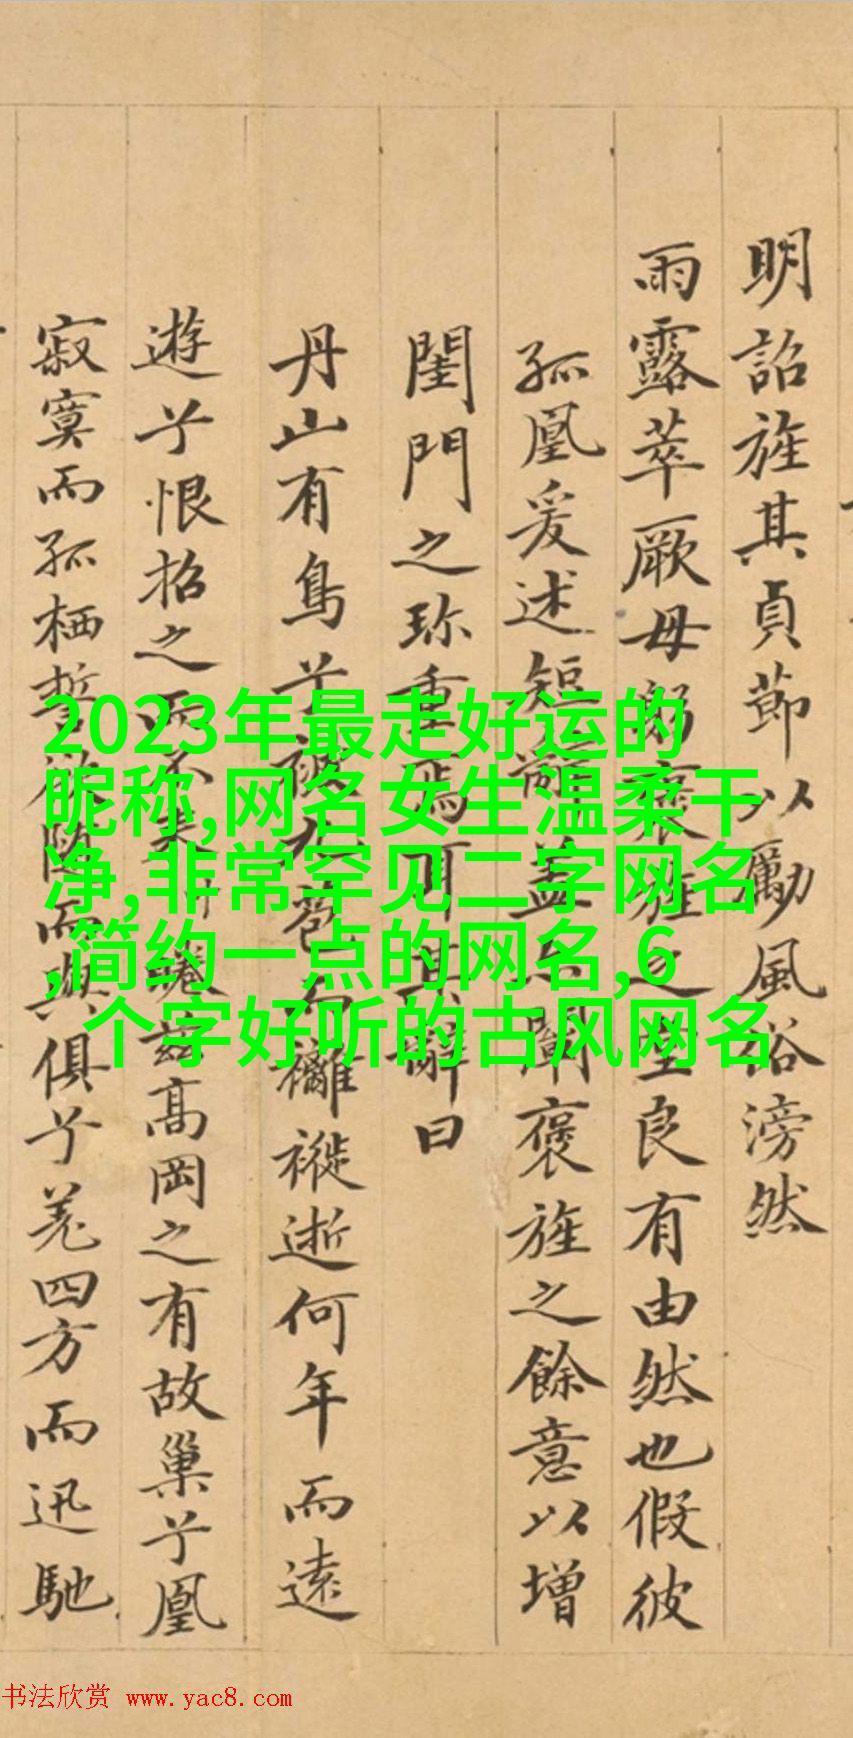 明詔旌其貞節以勵風俗滂然
雨露萃厥母躬褒旌之良有由然也假彼
孤凰爰述短辭蓋亦闡褒旌之餘意以增
閨門之珎重焉耳其辭曰
丹山有鳥兮被九苞襹褷逝何年而遠
遊兮恨招之而不來睠茲高岡之有故巢兮凰
寂寞而孤栖誓欲隨而與俱兮羌四方而迅馳
2023年最走好运的
昵称,网名女生温柔干
净,非常罕见二字网名
,简约一点的网名,6
个字好听的古风网名
书法欣赏 www.yac8.com